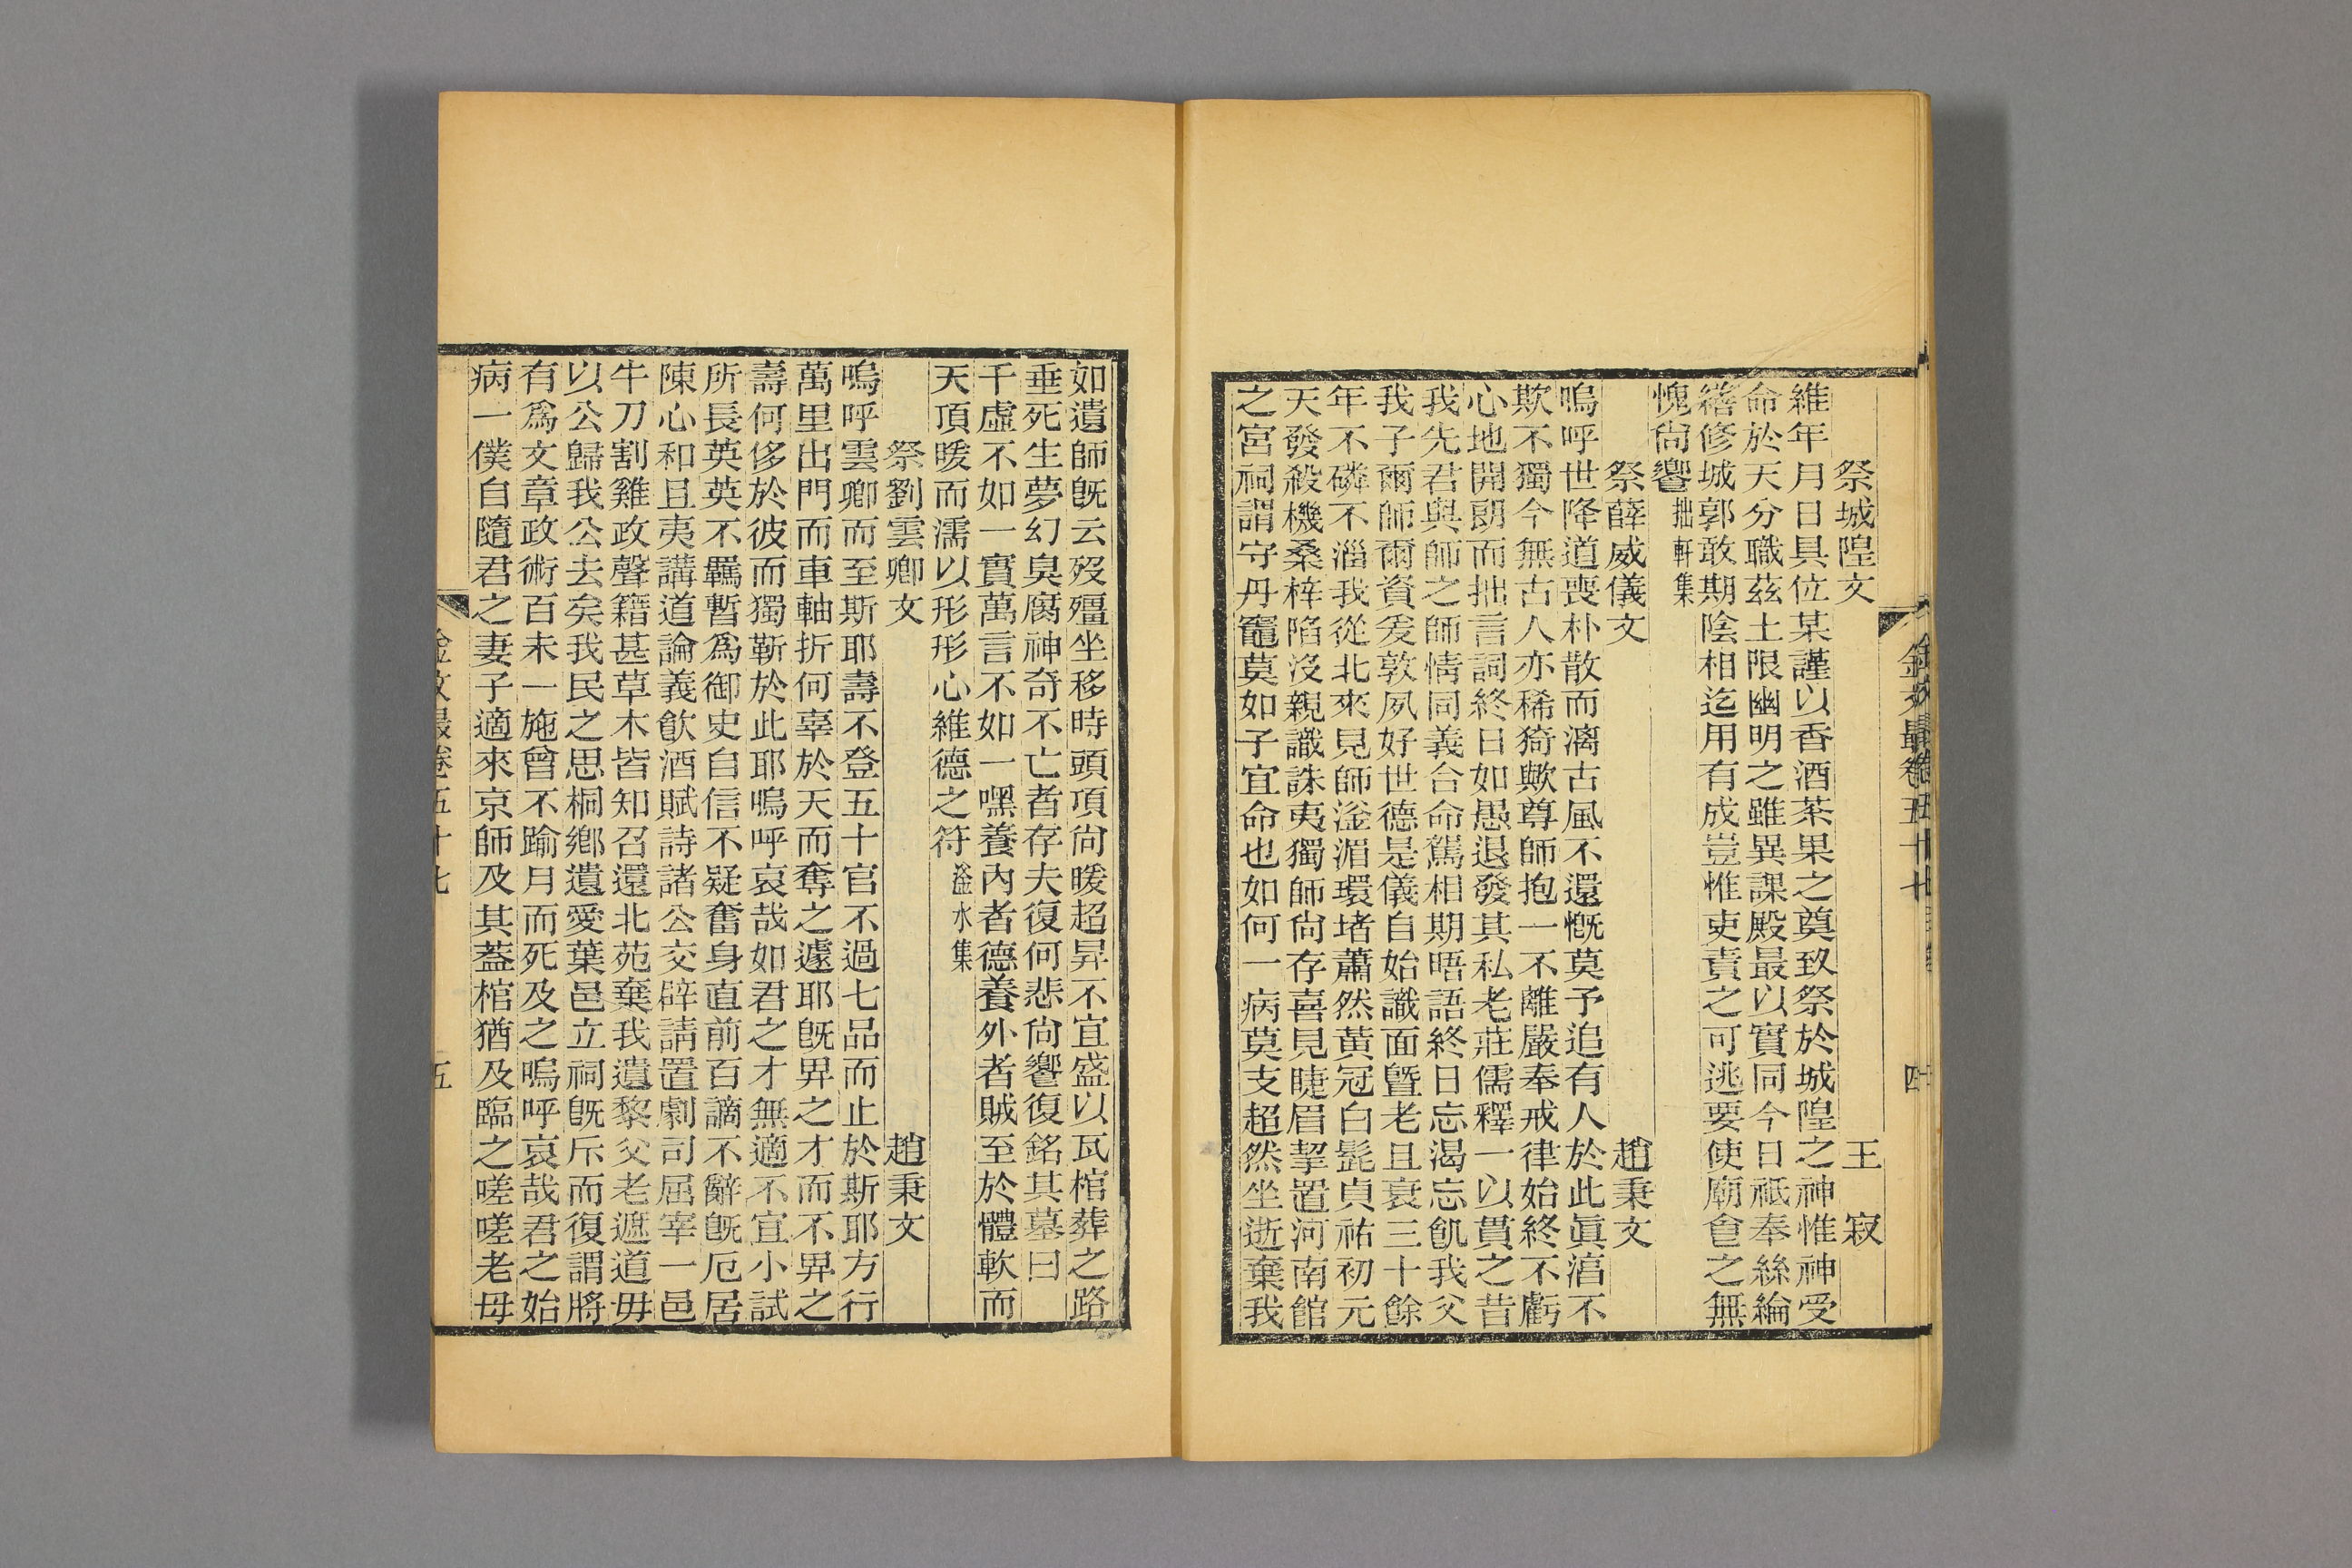 祭城隍文 王 寂
維年月日具位某謹以香酒茶果之奠致祭於城隍之神惟神受
命於天分職茲土限幽明之雖異課殿最以實同今日祇奉絲綸
繕修城郭敢期陰相迄用有成豈惟吏責之可逃要使廟會之無
愧尙饗拙軒集
祭薛威儀文 趙秉文
嗚呼世降道喪朴散而漓古風不還慨莫予追有人於此眞淳不
欺不獨今無古人亦稀猗歟尊師抱一不離嚴奉戒律始終不虧
心地開朗而拙言詞終日如愚退發其私老莊儒釋一以貫之昔
我先君與師之師情同義合命駕相期晤語終日忘渴忘飢我父
我子爾師爾資爰敦夙好世德是儀自始識面曁老且衰三十餘
年不磷不淄我從北來見師滏湄環堵蕭然黃冠白髭貞祐初元
天發殺機桑梓陷沒親識誅夷獨師尙存喜見睫眉挈置河南館
之宮祠謂守丹竈莫如子宜命也如何一病莫支超然坐逝棄我
金文最卷五十七 四
如遺師旣云歿殭坐移時頭項尙暖超昇不宜盛以瓦棺葬之路
垂死生夢幻臭腐神奇不亡者存夫復何悲尙饗復銘其墓曰
千虛不如一實萬言不如一嘿養內者德養外者賊至於體軟而
天頂暖而濡以形形心維德之符滏水集
祭劉雲卿文 趙秉文
嗚呼雲卿而至斯耶壽不登五十官不過七品而止於斯耶方行
萬里出門而車軸折何辜於天而奪之遽耶旣畀之才而不畀之
壽何侈於彼而獨靳於此耶嗚呼哀哉如君之才無適不宜小試
所長英英不羈暫爲御史自信不疑奮身直前百謫不辭旣厄居
陳心和且夷講道論義飮酒賦詩諸公交辟請置劇司屈宰一邑
牛刀割雞政聲籍甚草木皆知召還北苑棄我遺黎父老遮道毋
以公歸我公去矣我民之思桐鄉遺愛葉邑立祠旣斥而復謂將
有爲文章政術百未一施曾不踰月而死及之嗚呼哀哉君之始
病一僕自隨君之妻子適來京師及其蓋棺猶及臨之嗟嗟老母
金文最卷五十七 五